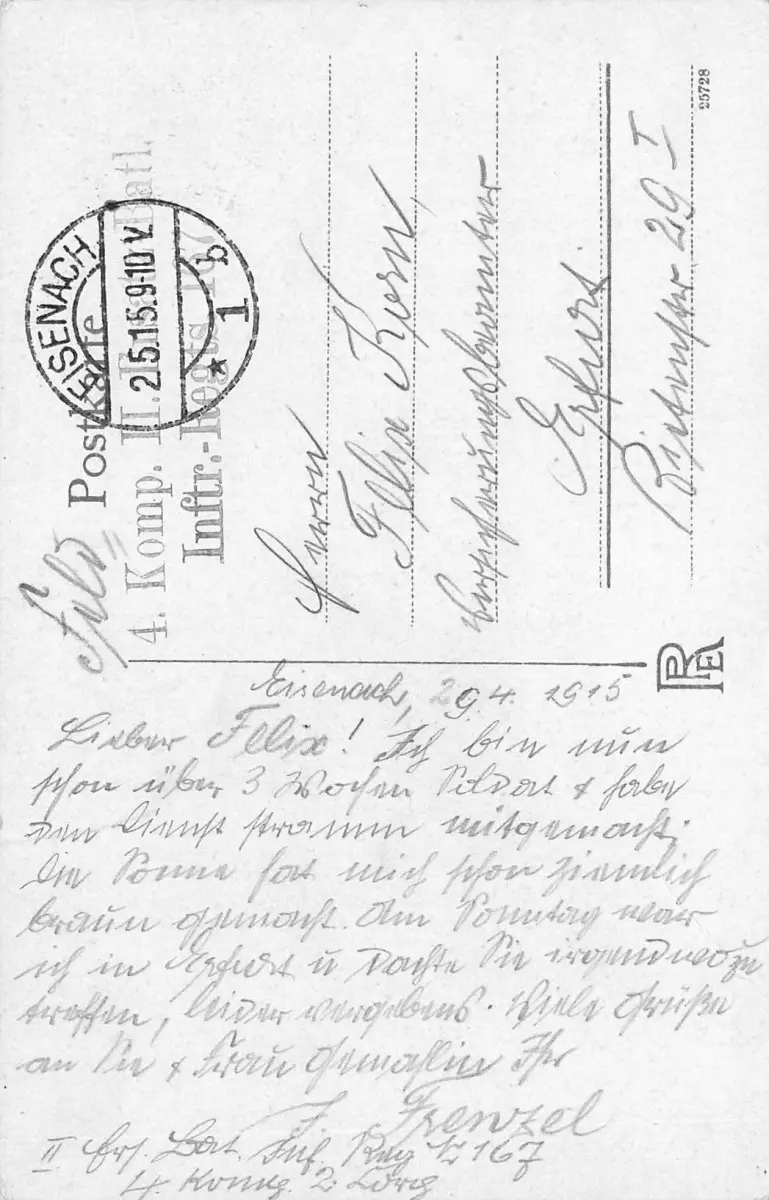 Feld=
Postkarte
4. Komp. II. Ersatz-Batl.
Inftr.-Regts. 167
EISENACH
2.5.15.9-10 V
* 1 b
Herrn
Felix Korn,
Versicherungsbeamter
Erfurt.
29 I
25728
Eisenach, 29 4. 1915
Lieber Felix! Ich bin nun
schon über 3 Wochen Soldat & habe
den Dienst stramm mitgemacht;
die Sonne hat mich schon ziemlich
braun gemacht. Am Sonntag war
ich in Erfurt u dachte Sie irgendwo zu
treffen, leider vergebens. Viele Grüße
an Sie & Frau Gemahlin Ihr
F. Frenzel
II Ers. Bat. Inf. Reg 167
4. Komp. 2.